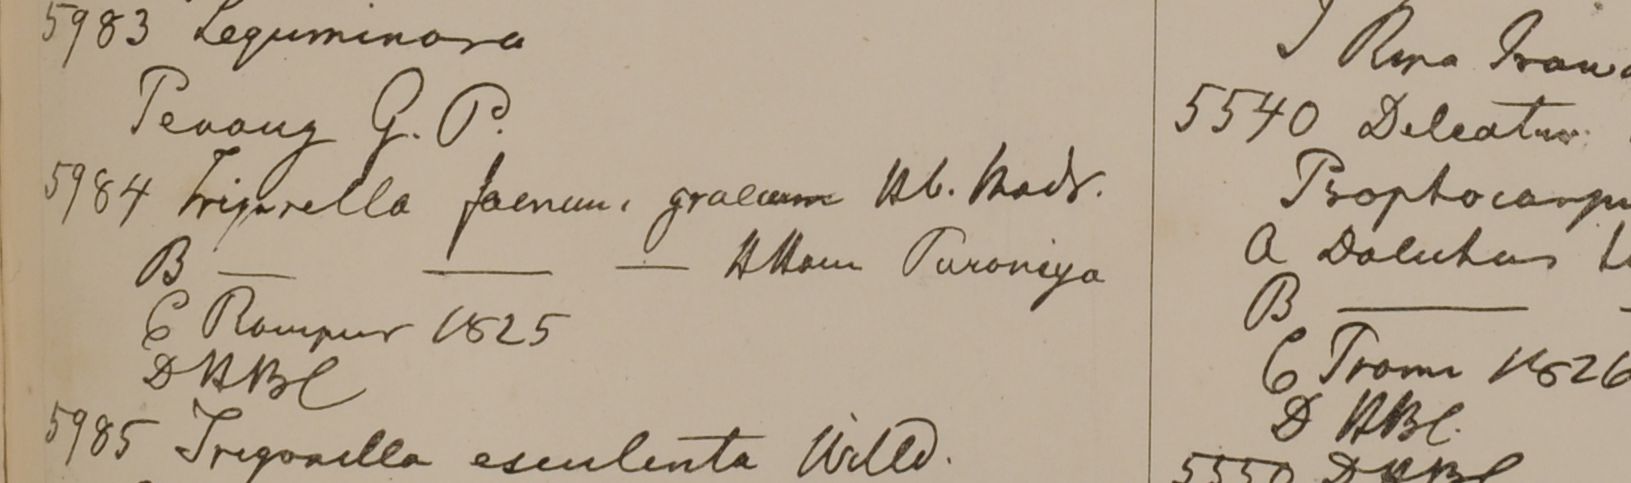 5983 Leguminosa
Penang G. P.
5984 Trigonella faenum graecum Hb. Madr.
B — — — H Ham Puroniya
C Rampur 1825
D HBC
5985 Trigonella esculenta Willd.
Rosa
5540 Deleatur
Psophocarpu
a Dolichos
B —
C Prome 1826
D HBC.
5550 D HBC